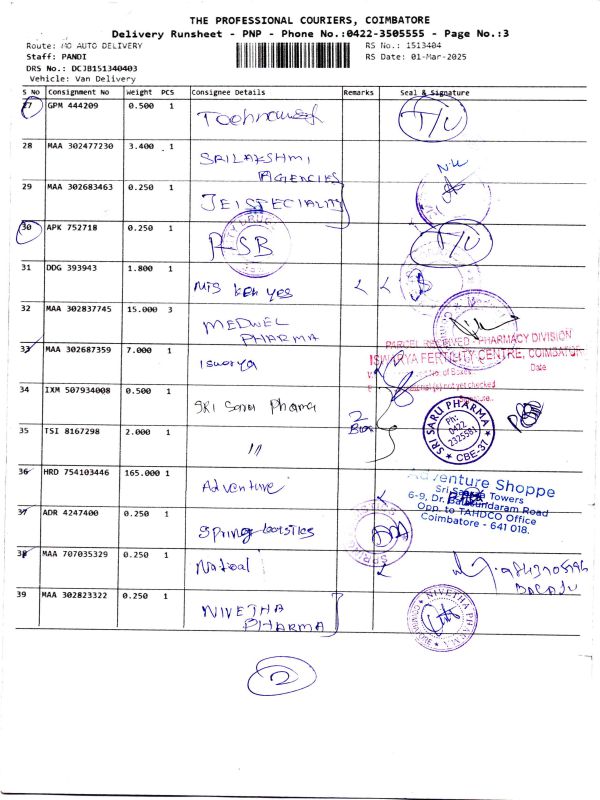 THE PROFESSIONAL COURIERS, COIMBATORE
Delivery Runsheet - PNP - Phone No.:0422-3505555 - Page No.:3
Route: MO AUTO DELIVERY RS No.: 1513404
Staff: PANDI RS Date: 01-Mar-2025
DRS No.: DCJB151340403
Vehicle: Van Delivery
S No Consignment No Weight PCS Consignee Details Remarks Seal & Signature
27 GPM 444209 0.500 1 T/U
28 MAA 302477230 3.400 1 SRILAKSHMI AGENCIES
29 MAA 302683463 0.250 1 JEISPECIALITY
30 APK 752718 0.250 1 RSB T/U
31 DDG 393943 1.800 1 M/S
32 MAA 302837745 15.000 3 MEDWEL PHARMA
PARCEL RECEIVED - PHARMACY DIVISION
ISWARYA FERTILITY CENTRE, COIMBATORE
No. of Boxes Date
not yet checked
33 MAA 302687359 7.000 1 Iswarya
34 IXM 507934008 0.500 1 SRI Saru Pharma 2 Box
SRI SARU PHARMA
Ph: 0422 2325581
CBE-37
35 TSI 8167298 2.000 1 "
36 HRD 754103446 165.000 1 Adventure
Adventure Shoppe
Towers
6-9, Dr. Balasundaram Road
Opp. to TAHDCO Office
Coimbatore - 641 018.
37 ADR 4247400 0.250 1 Spring
38 MAA 707035329 0.250 1
39 MAA 302823322 0.250 1 NIVETHA PHARMA
NIVETHA PHARMA
2